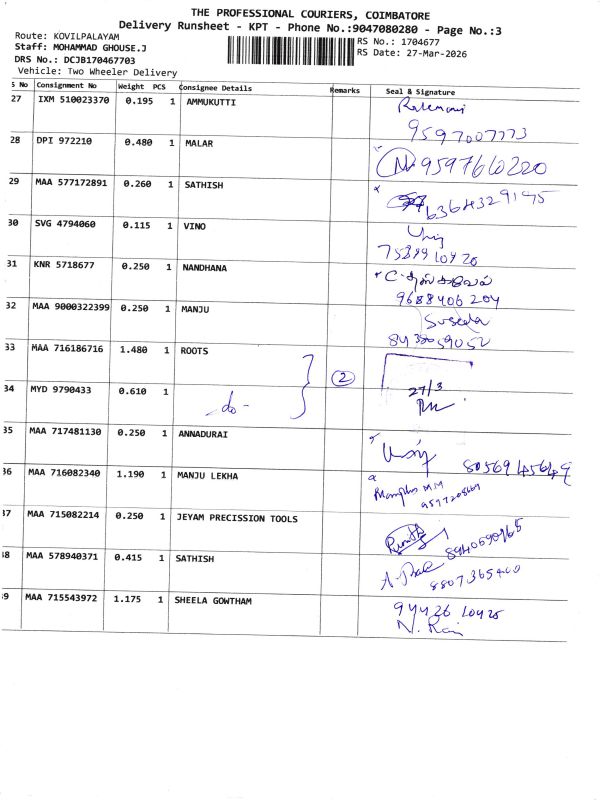 THE PROFESSIONAL COURIERS, COIMBATORE
Delivery Runsheet - KPT - Phone No.:9047080280 - Page No.:3
Route: KOVILPALAYAM
RS No.: 1704677
Staff: MOHAMMAD GHOUSE.J
RS Date: 27-Mar-2026
DRS No.: DCJB170467703
Vehicle: Two Wheeler Delivery
S No Consignment No Weight PCS Consignee Details Remarks Seal & Signature
27 IXM 510023370 0.195 1 AMMUKUTTI
9597007773
28 DPI 972210 0.480 1 MALAR
9597660220
29 MAA 577172891 0.260 1 SATHISH
6364329195
30 SVG 4794060 0.115 1 VINO
31 KNR 5718677 0.250 1 NANDHANA
9688406204
32 MAA 9000322399 0.250 1 MANJU
Suseela
8438059052
33 MAA 716186716 1.480 1 ROOTS
2
34 MYD 9790433 0.610 1
-do-
27/3
35 MAA 717481130 0.250 1 ANNADURAI
36 MAA 716082340 1.190 1 MANJU LEKHA
9597208669
37 MAA 715082214 0.250 1 JEYAM PRECISSION TOOLS
38 MAA 578940371 0.415 1 SATHISH
39 MAA 715543972 1.175 1 SHEELA GOWTHAM
94426 10425